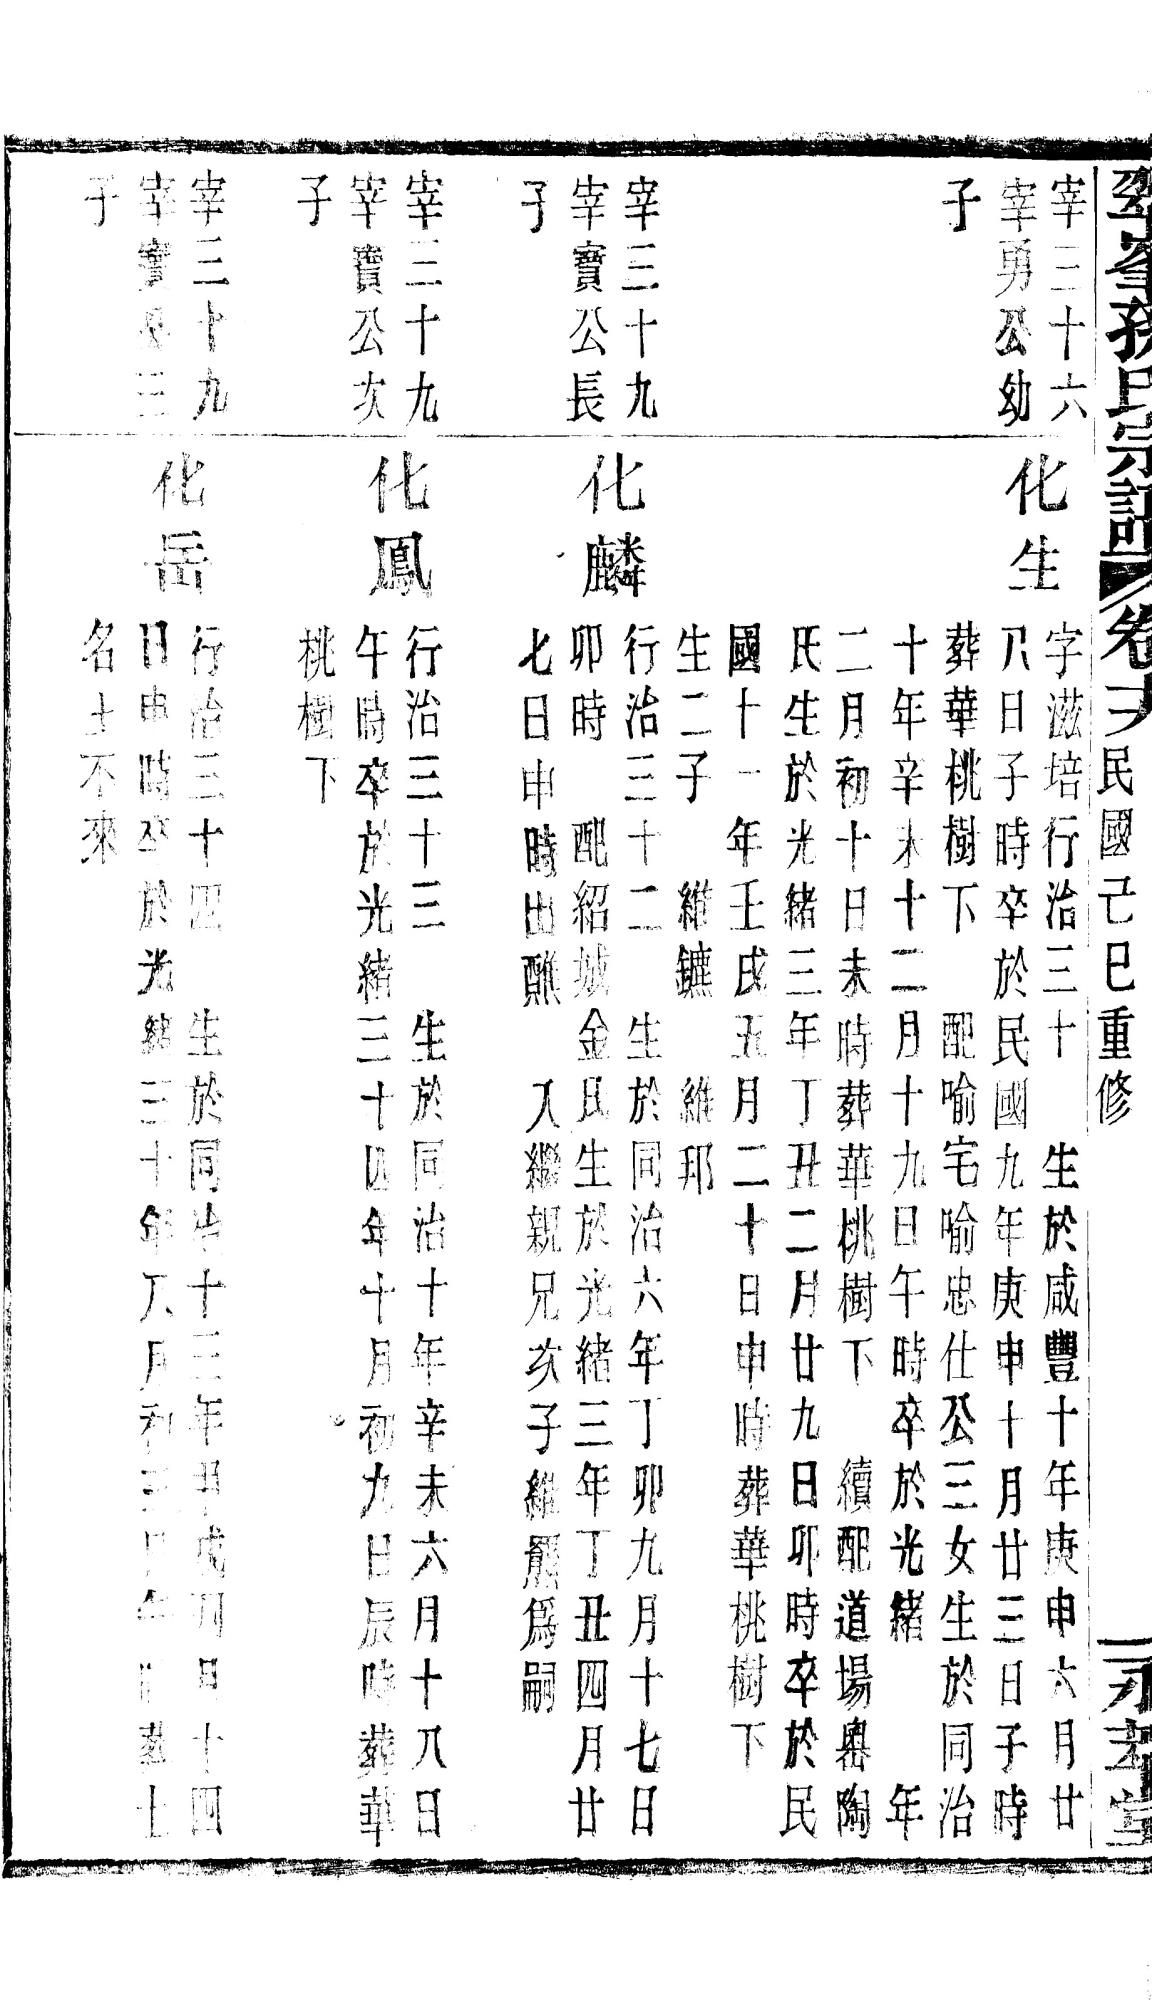 翠峯孫氏宗譜 卷十六 民國己巳重修 永孝堂
宰三十六
宰勇公幼
子
化生
字滋培行治三十 生於咸豐十年庚申六月廿
八日子時卒於民國九年庚申十月廿三日子時
葬華桃樹下 配喻宅喻忠仕公三女生於同治
十年辛未十二月十九日午時卒於光緒 年
二月初十日未時葬華桃樹下 續配道場墺陶
氏生於光緒三年丁丑二月廿九日卯時卒於民
國十一年壬戌五月二十日申時葬華桃樹下
生二子 維鑣 維邦
宰三十九
宰寶公長
子
化麟
行治三十二 生於同治六年丁卯九月十七日
卯時 配紹城金氏生於光緒三年丁丑四月廿
七日申時出醮 入繼親兄次子維羆為嗣
宰三十九
宰寶公次
子
化鳳
行治三十三 生於同治十年辛未六月十八日
午時卒於光緒三十四年十月初九日辰時葬華
桃樹下
宰三十九
宰寶公三
子
化岳
行治三十四 生於同治十三年甲戌四月十四
日申時卒於光緒三十年八月初三日午時葬土
名土不來